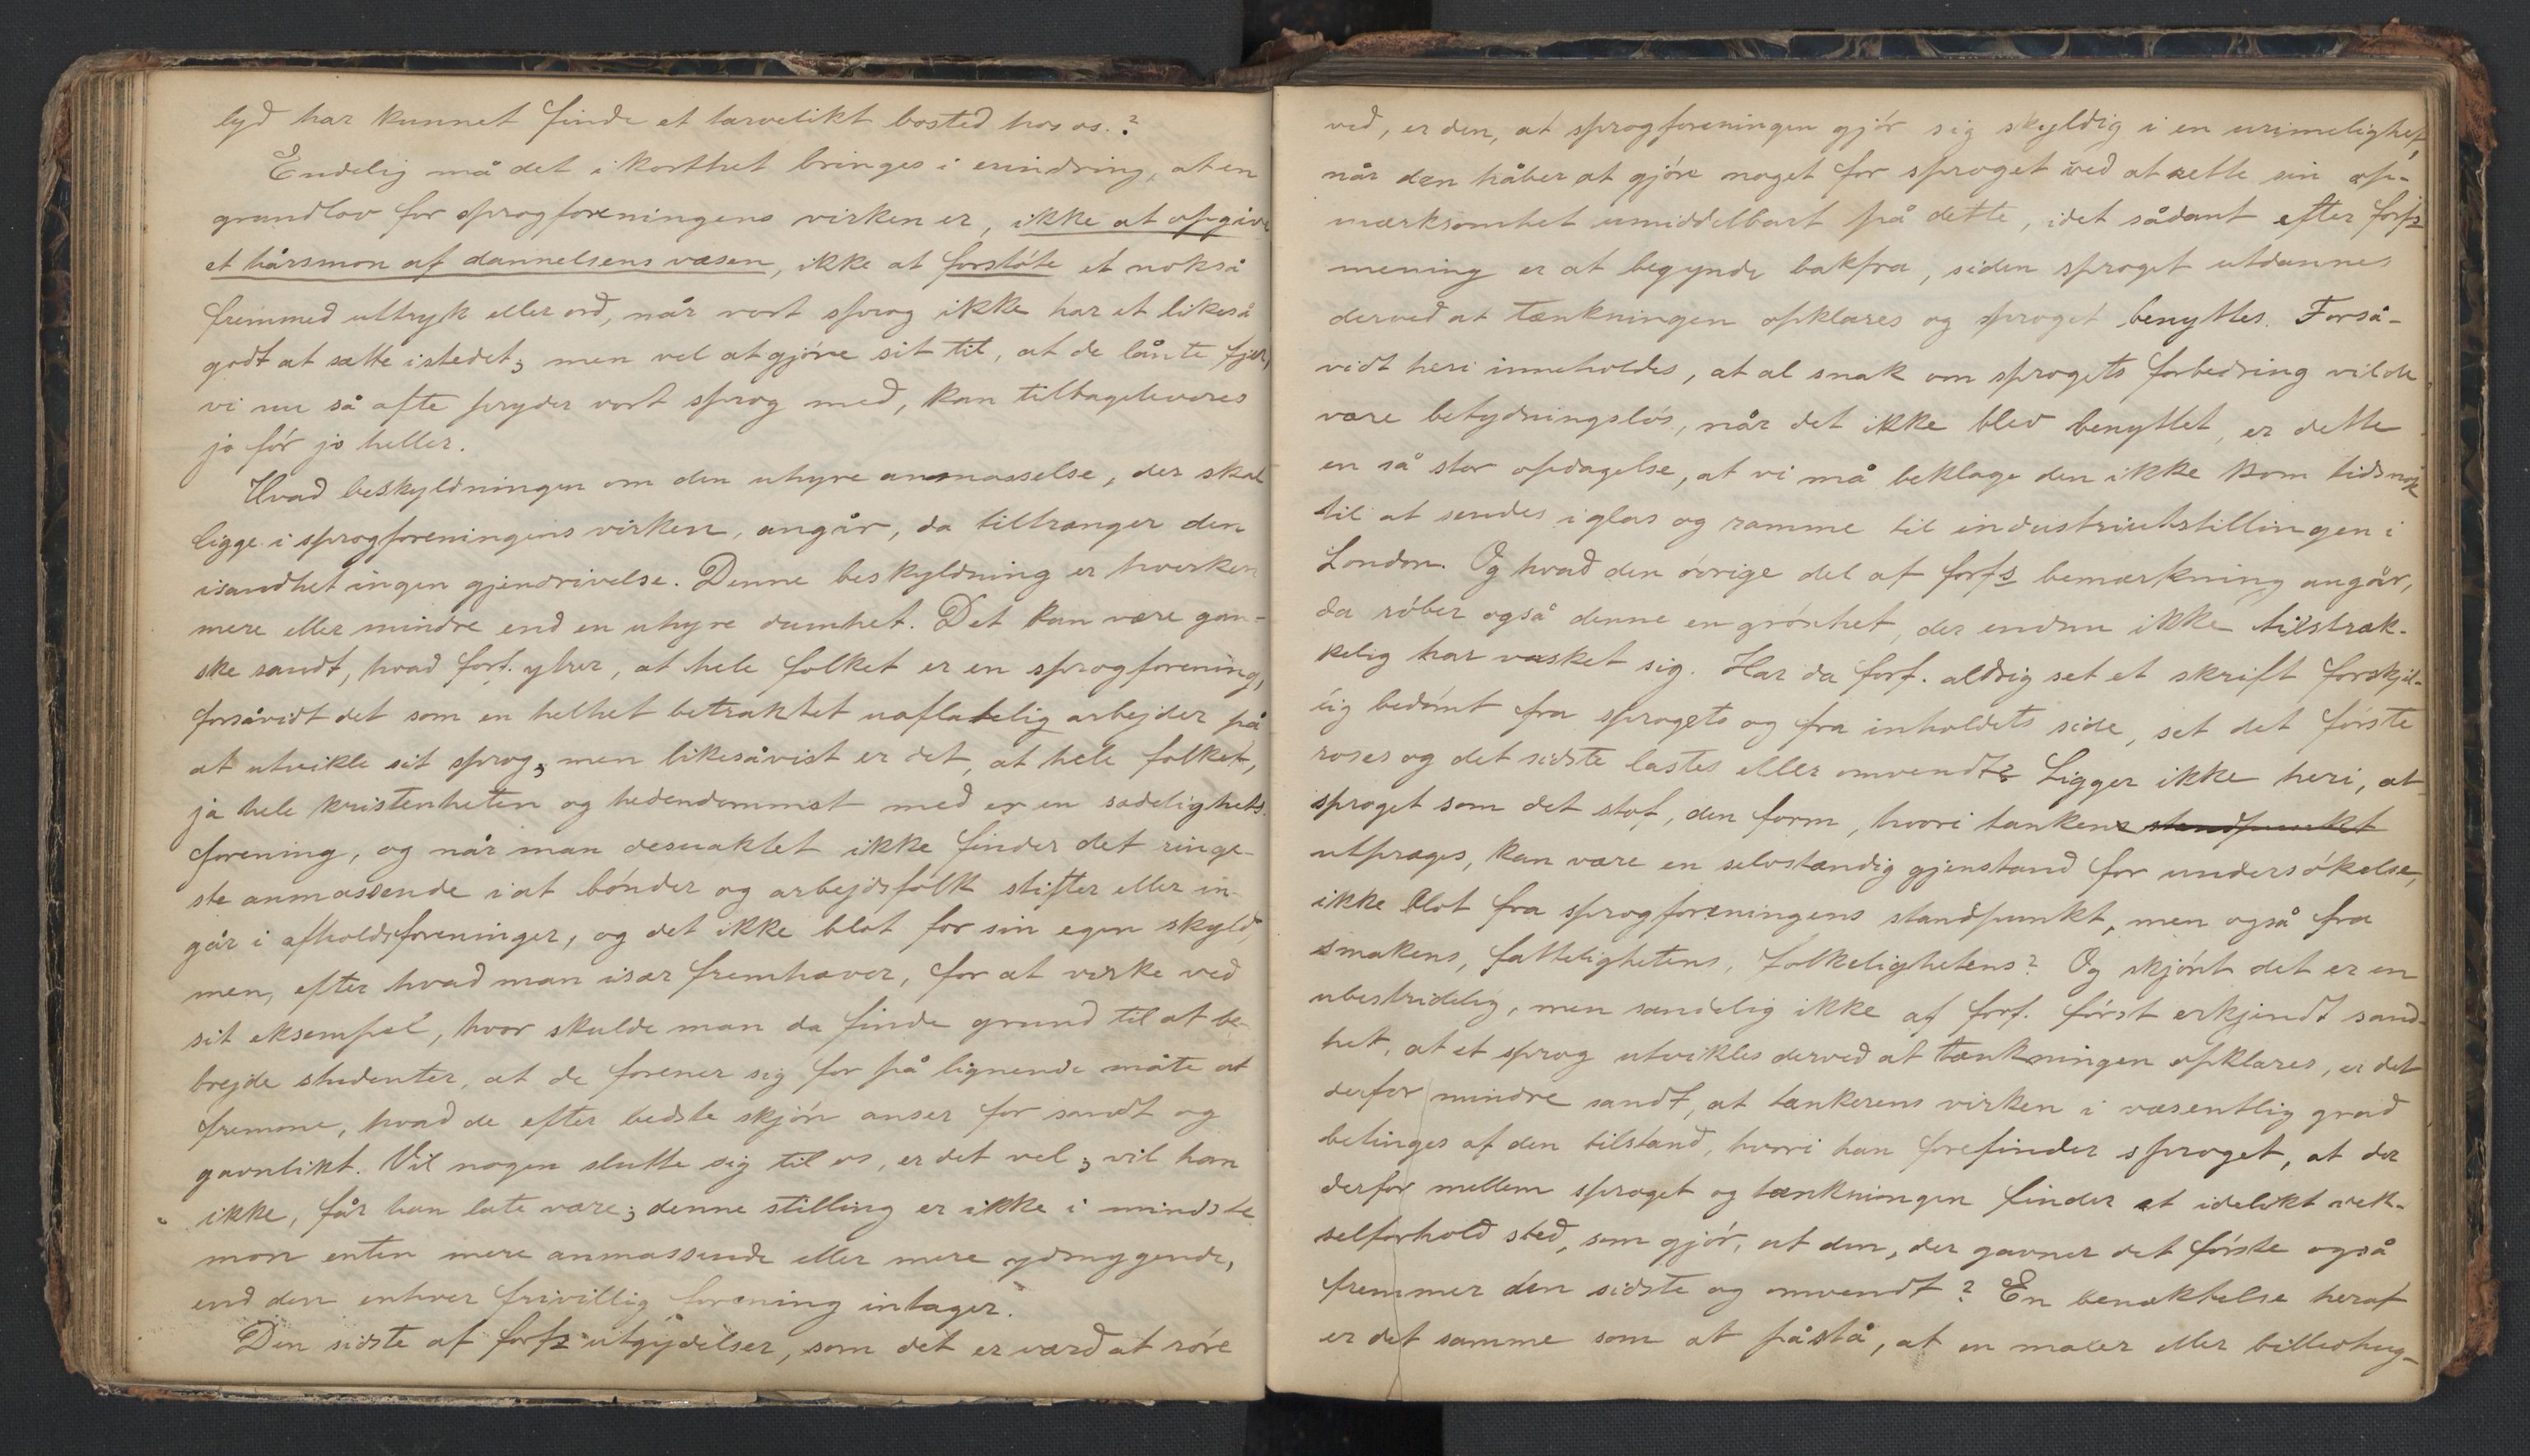 lyd har kunnet finde et tarvelikt bosted hos os.?
Endelig må det i korthet bringes i erindring, at en
grundlov for sprogforeningens virken er, ikke at opgive
et hårsmon af dannelsens væsen, ikke at forstóte et nokså
fremmed uttryk eller ord, når vort sprog ikke har et likeså
godt at sætte istedet; men vel at gjóre sit til, at de lånte fjer,
vi nu så ofte pryder vort sprog med, kan tilbageleveres
jo fór jo heller.
Hvad beskyldningen om den uhyre anmasselse, der skal
ligge i sprogforeningens virken, angår, da tiltrænger den
isandhet ingen gjendrivelse. Denne beskyldning er hverken
mere eller mindre end en uhyre dumhet. Det kan være gan-
ske sandt, hvad forf. ytrer, at hele folket er en sprogforening,
forsåvidt det som en helhet betraktet uaflatelig arbejder på
at utvikle sit sprog; men likesåvist er det, at hele folket,
ja hele kristenheten og hedendommet med er en sædelighets-
forening, og når man desuaktet ikke finder det ringe-
ste anmassende i at bónder og arbejdsfolk stifter eller in-
går i afholdsforeninger, og det ikke blot for sin egen skyld,
men, efter hvad man især fremhæver, for at virke ved
sit eksempel, hvor skulde man da finde grund til at be-
brejde studenter, at de forener sig for på lignende måte at
fremme, hvad de efter bedste skjón anser for sandt og
gavnlikt. Vil nogen slutte sig til os, er det vel; vil han
ikke, får han late være; denne stilling er ikke i mindste
mon enten mere anmassende eller mere ydmygende,
end den enhver frivillig forening intager.
Den sidste af forfs utgydelser, som det er værd at róre
ved, er den, at sprogforeningen gjór sig skyldig i en urimelighet,
når den håber at gjóre noget for sproget ved at sette sin op-
mærksomhet umiddelbart på dette, idet sådant efter forfs
mening er at begynde bakfra, siden sproget utdannes
derved at tænkningen opklares og sproget benyttes. Forså-
vidt heri inneholdes, at al snak om sprogets forbedring vilde
være betydningslós, når det ikke blev benyttet, er dette
en så stor opdagelse, at vi må beklage den ikke kom tidsnok
til at sendes i glas og ramme til industriutstillingen i
London. Og hvad den óvrige del af forfs bemærkning angår,
da róber også denne en grónhet, der endnu ikke tilstræk-
kelig har vasket sig. Har da forf. aldrig set et skrift forskjel-
lig bedómt fra sprogets og fra inholdets side, set det fórste
roses og det sidste lastes eller omvendt? Ligger ikke heri, at
sproget som det stof, den form, hvori tankens standpunkt
utpræges, kan være en selvstændig gjenstand for undersókelse,
ikke blot fra sprogforeningens standpunkt, men også fra
smakens, fattelighetens, folkelighetens? Og skjónt det er en
ubestridelig, men sandelig ikke af forf. fórst erkjendt sand-
het, at et sprog utvikles derved at tænkningen opklares, er det
derfor mindre sandt, at tænkerens virken i væsentlig grad
betinges af den tilstand, hvori han forefinder sproget, at der
derfor mellem sproget og tænkningen finder et idelikt vek-
selforhold sted, som gjór, at den, der gavner det fórste også
fremmer den sidste og omvendt? En benæktelse heraf
er det samme som at påstå, at en maler eller billedhug-